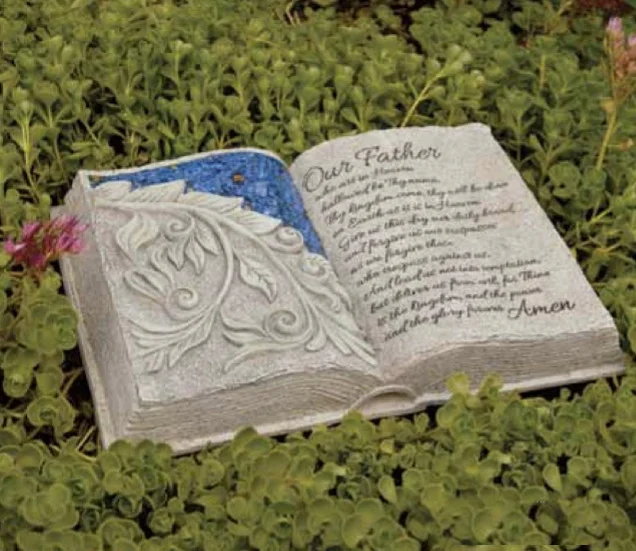 Our Father
who art in Heaven
hallowed be Thy name.
Thy Kingdom come, thy will be done
on Earth as it is in Heaven
Give us this day our daily bread
and forgive us our trespasses
as we forgive those
who trespass against us.
And lead us not into temptation
but deliver us from evil, for Thine
is the Kingdom, and the power
and the glory forever Amen